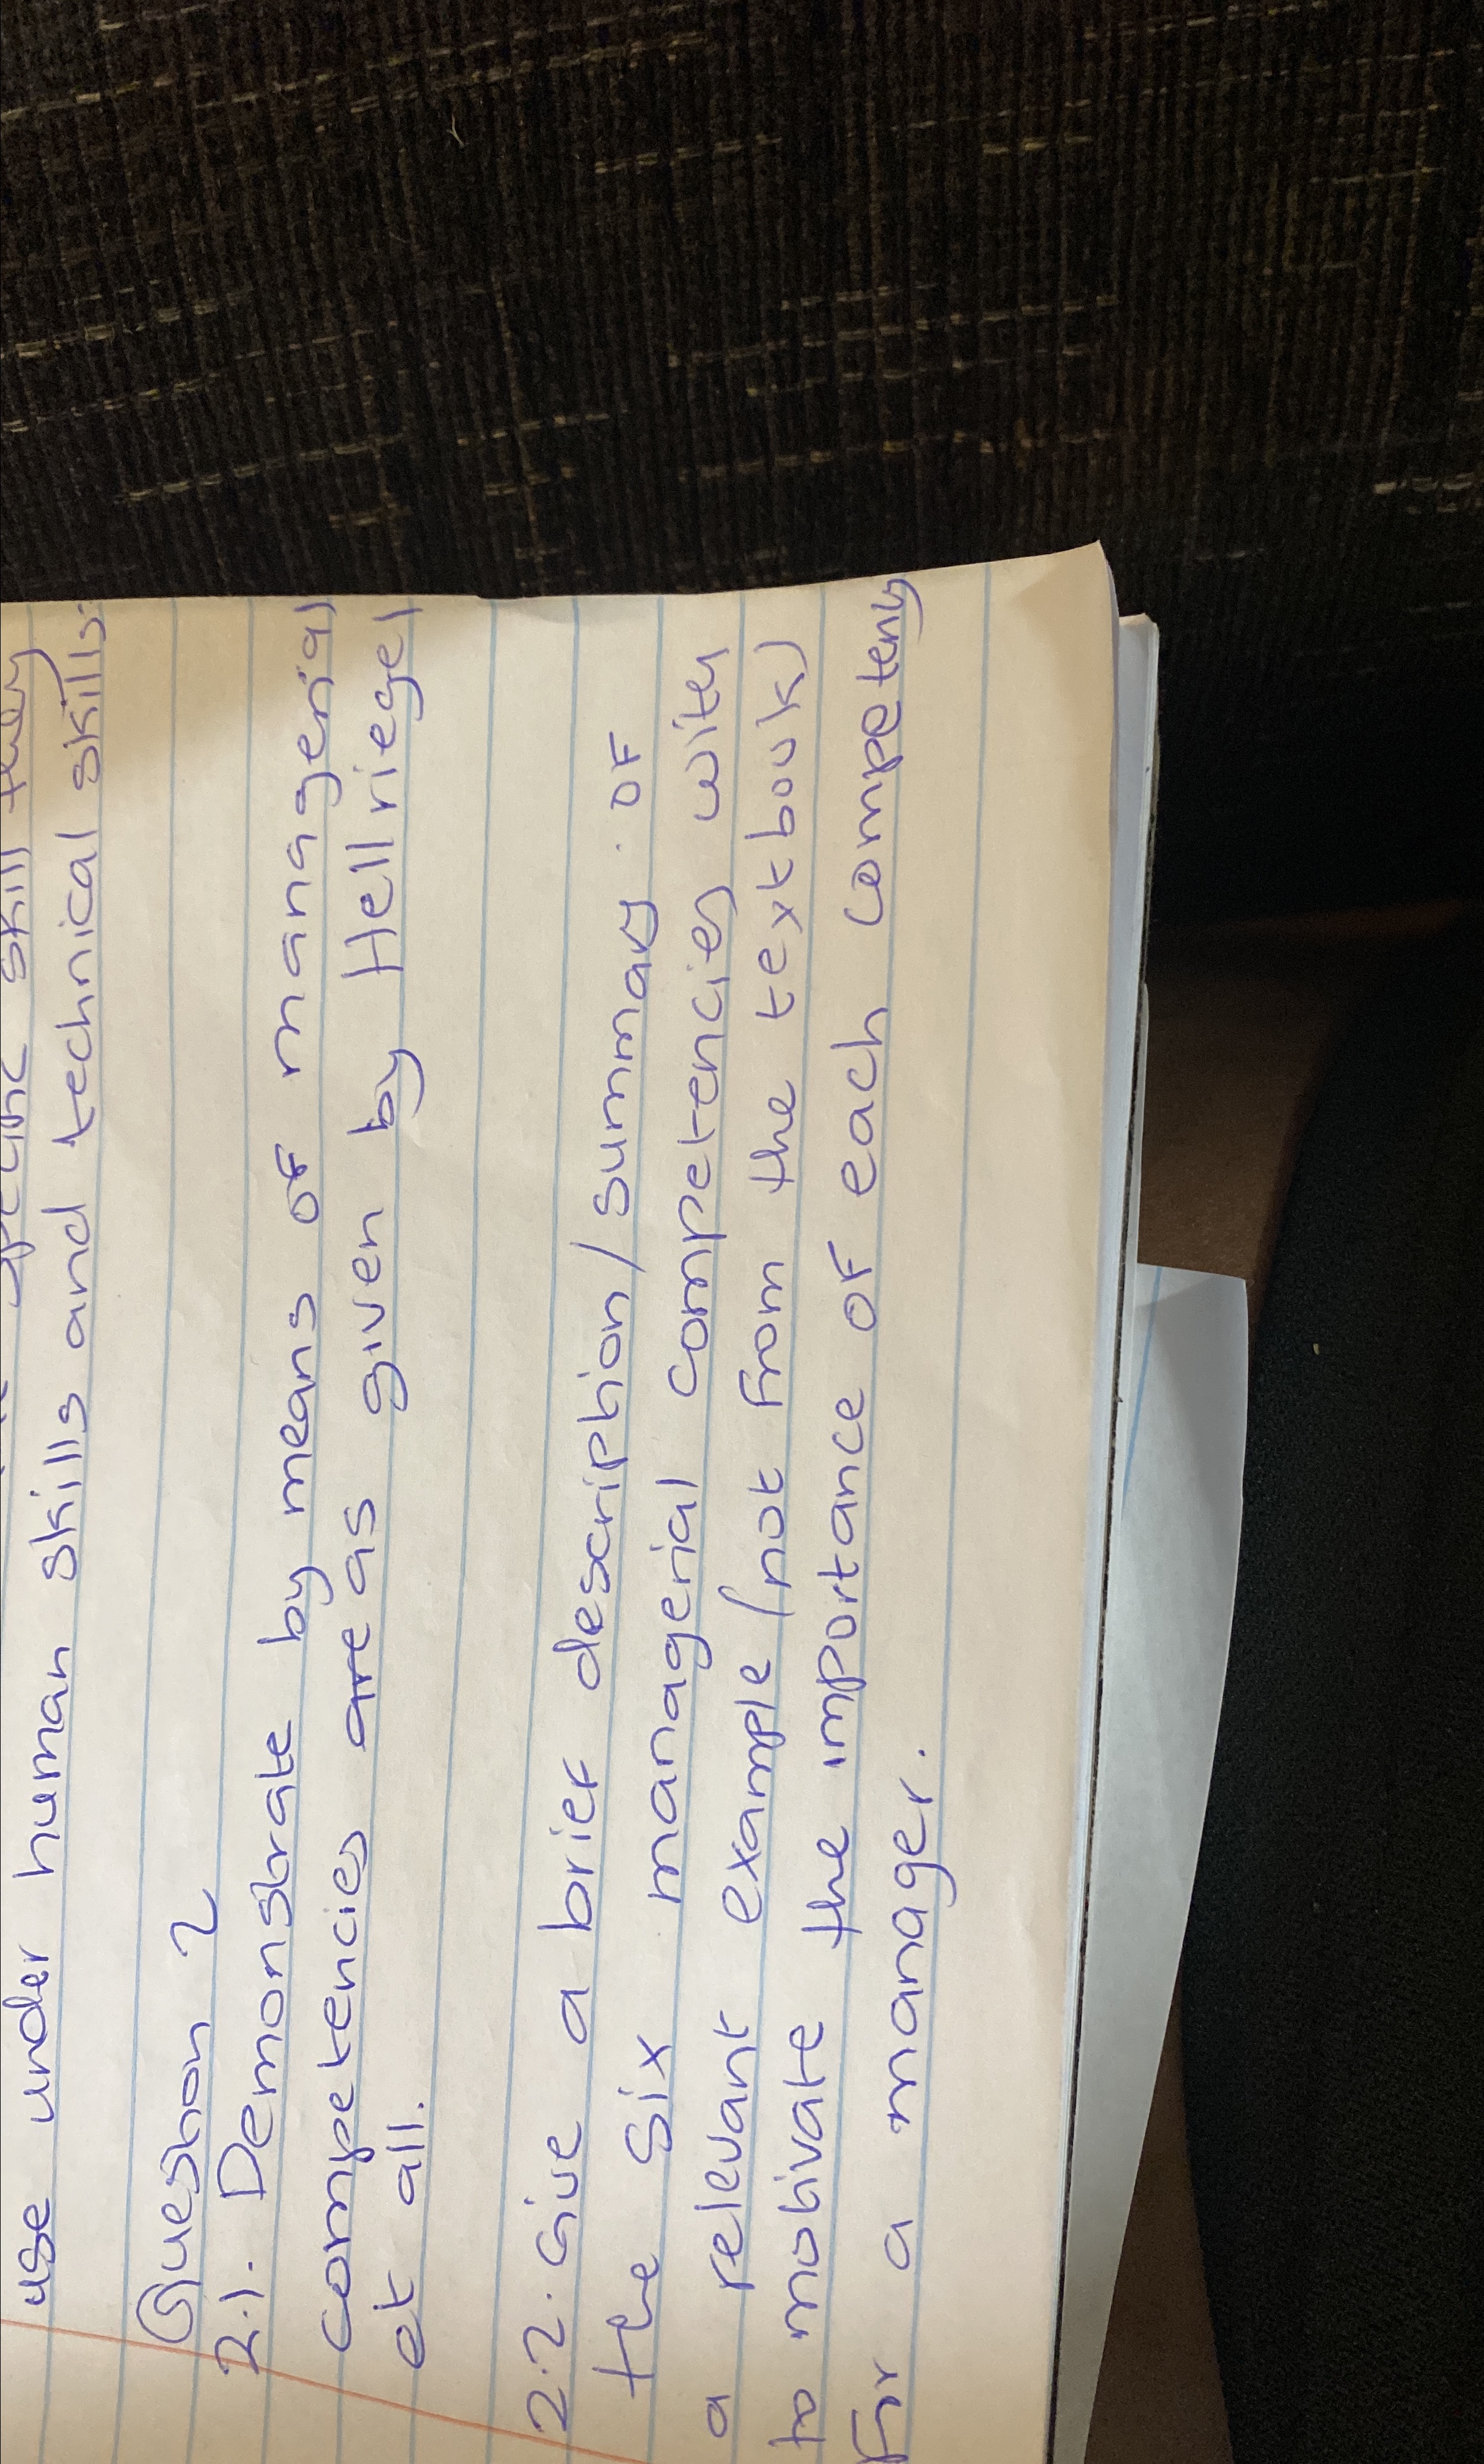 use under human skills and technical skills.
Question 2
2.1. Demonstrate by means of managerial
competencies are as given by Hellriegel
et all.
2.2. Give a brief description/summary of
the six managerial competencies with
a relevant example (not from the textbook)
to motivate the importance of each competency
For a manager.